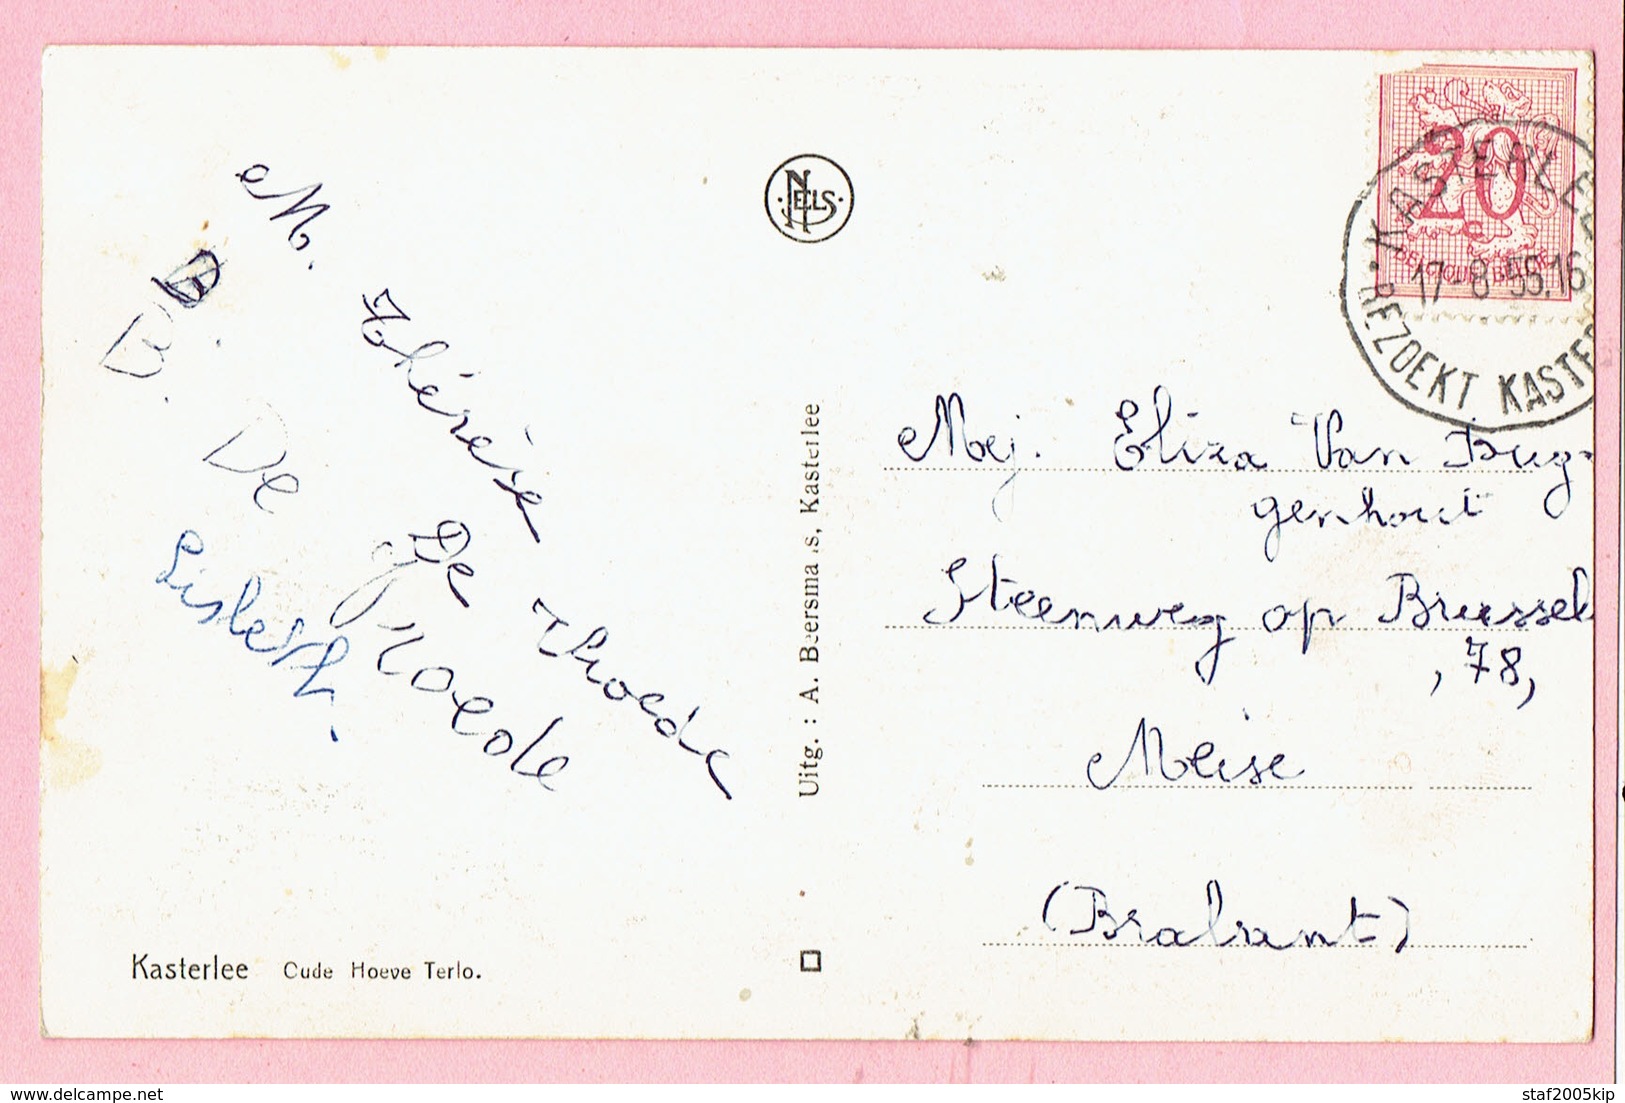 M. Thérèse De Throede
B.
B. De Noeole
Lisbeth.
NELS
Uitg. : A. Beersma s, Kasterlee
20
c
BELGIQUE BELGIË
KASTERLEE
17-8-55.16
BEZOEKT KASTER
Mej. Eliza Van Bug-
genhout
Steenweg op Brussel
, 78,
Meise
(Brabant)
Kasterlee Oude Hoeve Terlo.
delcampe.net
staf2005kip